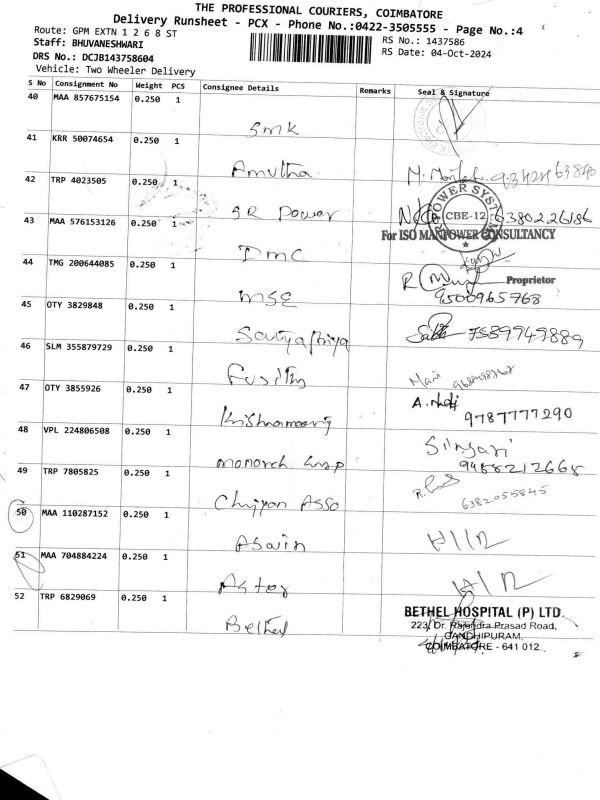 THE PROFESSIONAL COURIERS, COIMBATORE
Delivery Runsheet - PCX - Phone No.:0422-3505555 - Page No.:4
Route: GPM EXTN 1 2 6 8 ST
RS No.: 1437586
Staff: BHUVANESHWARI
RS Date: 04-Oct-2024
DRS No.: DCJB143758604
Vehicle: Two Wheeler Delivery
S No Consignment No Weight PCS Consignee Details Remarks Seal & Signature
40 MAA 857675154 0.250 1
SMK
41 KRR 50074654 0.250 1
Amutha
42 TRP 4023505 0.250 1
SR Power
POWER SYS CBE-12 6380226186
43 MAA 576153126 0.250 1
For ISO MANPOWER CONSULTANCY
DMC
44 TMG 200644085 0.250 1
Proprietor
MSE
9500965768
45 OTY 3829848 0.250 1
Sathyapriya
7589949889
46 SLM 355879729 0.250 1
47 OTY 3855926 0.250 1
Krishnamoorthy
9787777290
48 VPL 224806508 0.250 1
monarch
9488212668
49 TRP 7805825 0.250 1
Asso
6382055845
50 MAA 110287152 0.250 1
Aswin
51 MAA 704884224 0.250 1
Aster
52 TRP 6829069 0.250 1
BETHEL HOSPITAL (P) LTD.
Bethel
223, Dr. Rajendra Prasad Road,
GANDHIPURAM,
COIMBATORE - 641 012